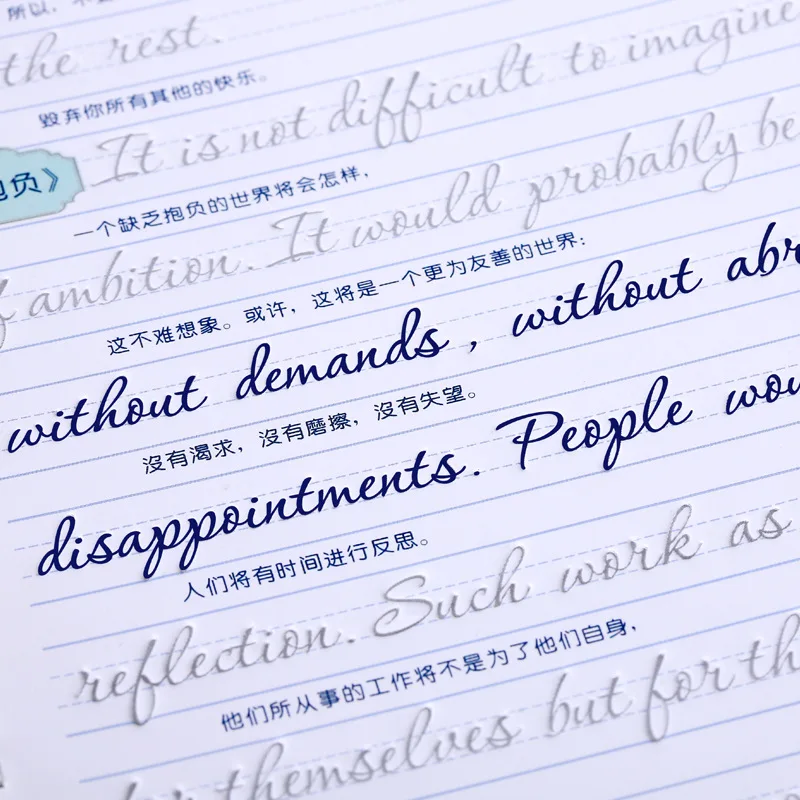 所以,
the rest.
毁弃你所有其他的快乐。
It is not difficult to imagine
抱负》
一个缺乏抱负的世界将会怎样,
f ambition. It would probably be
这不难想象。或许,这将是一个更为友善的世界:
without demands, without abr
沒有渴求,沒有磨擦,沒有失望。
disappointments. People wou
人们将有时间进行反思。
reflection. Such work as
他们所从事的工作将不是为了他们自身,
themselves but for th